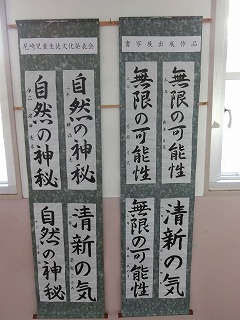 尼崎児童生徒文化発表会
自然の神秘
自然の神秘
清新の気
自然の神秘
書写展出展作品
無限の可能性
無限の可能性
清新の気
無限の可能性